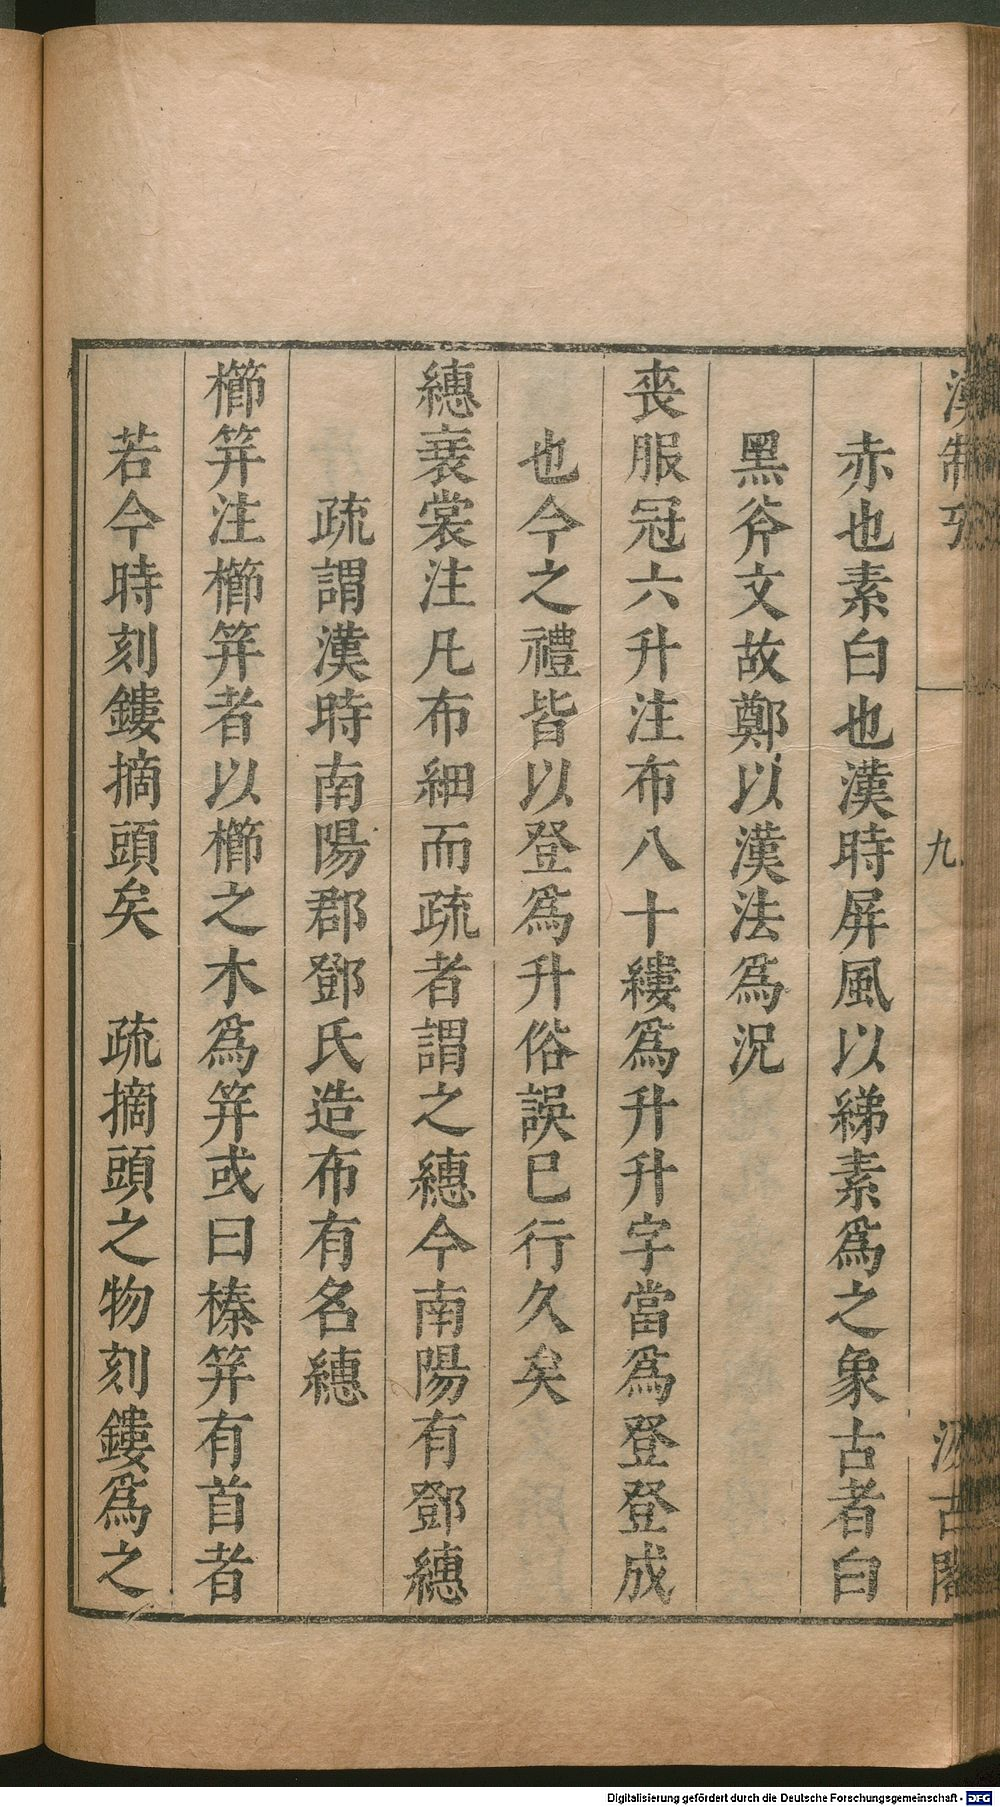 漢制攷
九
汲古閣
赤也素白也漢時屏風以綈素爲之象古者白
黑斧文故鄭以漢法爲況
喪服冠六升注布八十縷爲升升字當爲登登成
也今之禮皆以登爲升俗誤已行久矣
繐衰裳注凡布細而疏者謂之繐今南陽有鄧繐
疏謂漢時南陽郡鄧氏造布有名繐
櫛笄注櫛笄者以櫛之木爲笄或曰榛笄有首者
若今時刻鏤摘頭矣　疏摘頭之物刻鏤爲之
Digitalisierung gefördert durch die Deutsche Forschungsgemeinschaft - DFG